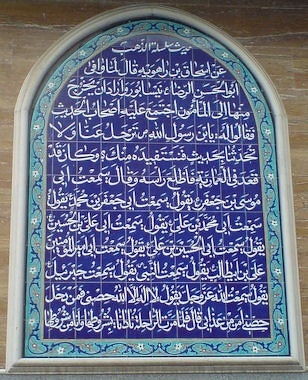 حدیث سلسلة الذهب
عن اسحاق بن راهویه قال لما وافی
ابوالحسن الرضاء نیسابور و اراد ان یخرج
منها الی المأمون اجتمع علیه اصحاب الحدیث
فقالوا له یابن رسول الله ترحل عنا ولا
تحدثنا بحدیث فنستفیده منک؟ وکان قد
قعد فی العماریة فاطلع راسه وقال سمعت ابی
موسی بن جعفر یقول سمعت ابی جعفر بن محمد یقول
سمعت ابی محمد بن علی یقول سمعت ابی علی بن الحسین
یقول سمعت ابی الحسین بن علی یقول سمعت ابی امیرالمؤمنین
علی بن ابیطالب یقول سمعت النبی یقول سمعت جبرئیل
یقول سمعت الله عزوجل یقول لا اله الا الله حصنی فمن دخل
حصنی امن من عذابی قال فلما مرت الراحلة نادانا بشروطها وانا من شروطها